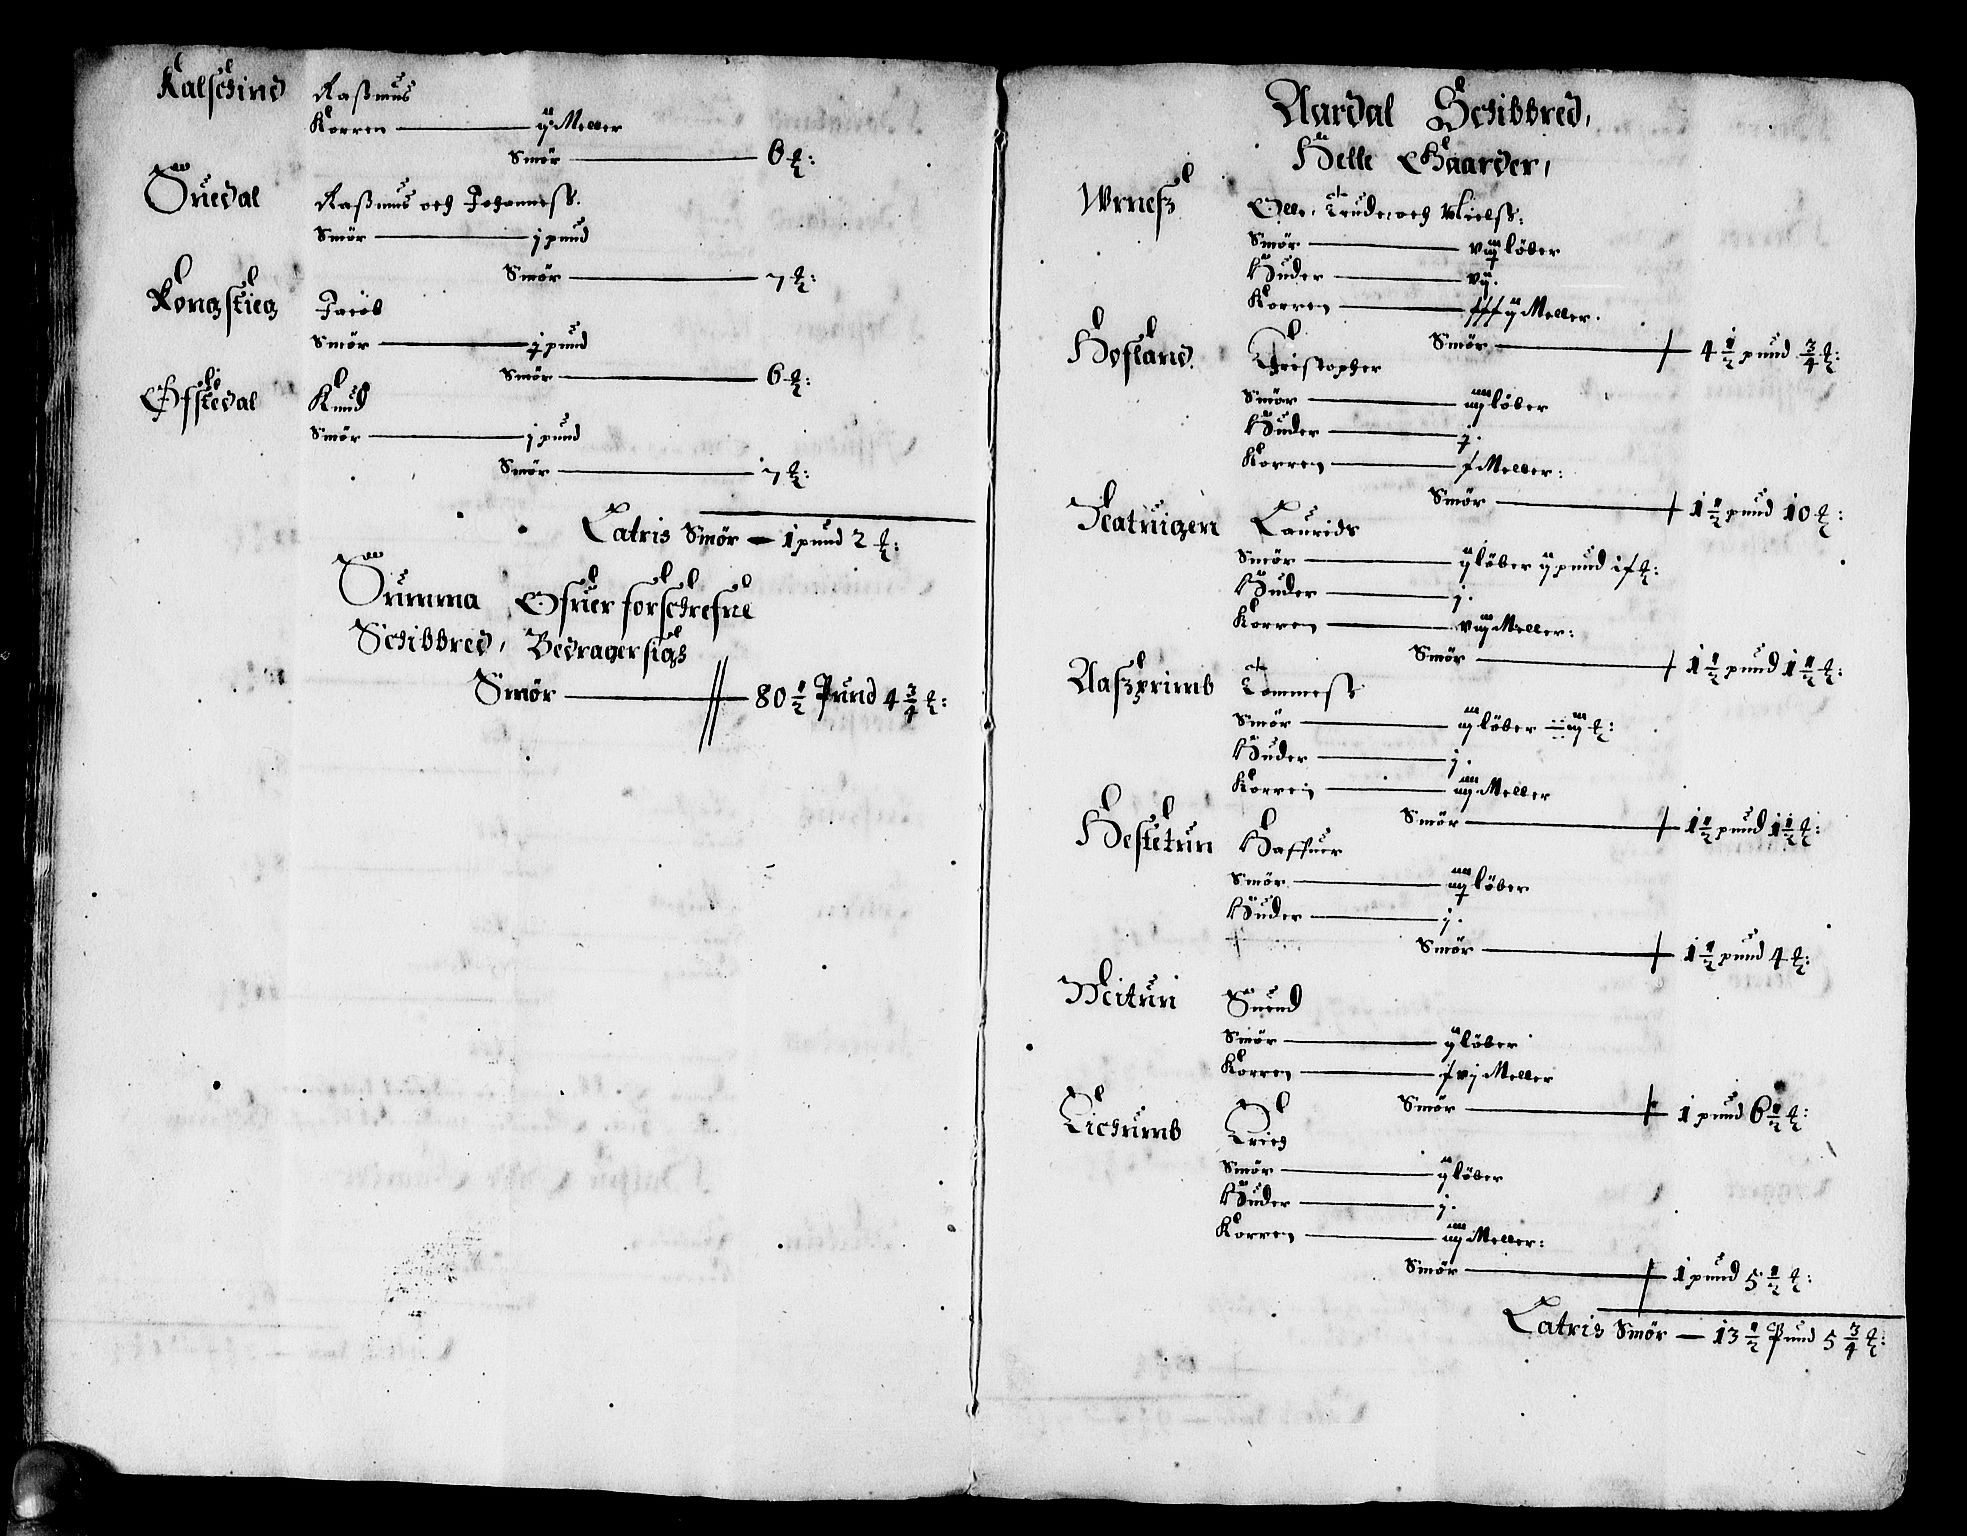 Kalschind Raßmus
Korren — ij Meller
Smör — 6 ℔:
Suedal Raßmus och Johanneß.
Smör — j pund
Smör — 7 ℔:
Kongstieg Jacob
Smör — j pund
Smör — 6 ℔:
Ofstedal Knud
Smör — j pund
Smör — 7 ℔:
Latris Smör — 1 pund 2 ℔:
Summa Ofuer forschrefne
Schibbred, Bedrager sigh
Smör — 80 ½ Pund 4 ¾ ℔:
Aardal Schibbred,
Helle Gaarder,
Wrneß Olle, Trude, och Nielß:
Smör — viij löber
Huder — vij.
Korren — xxxij Meller.
Smör — 4 ½ pund ¾ ℔:
Hofland. Christopher
Smör — iiij löber
Huder — j.
Korren — x Meller:
Smör — 1 ½ pund 10 ℔:
Natuigen Laurids
Smör — ij löber ij pund ix ℔:
Huder — j.
Korren — viij Meller:
Smör — 1 ½ pund 1 ½ ℔:
Aaßprimb Tommeß
Smör — iij löber ÷ iij ℔:
Huder — j.
Korren — iiij Meller
Smör — 1 ½ pund 1 ½ ℔:
Hestetun Haffuer
Smör — iiij löber
Huder — j.
Smör — 1 ½ pund 4 ℔:
Meituri Suend
Smör — ij löber
Korren — xvj Meller
Smör — 1 pund 6 ½ ℔:
Lichumb Erich
Smör — ij löber
Huder — j.
Korren — iiij Meller:
Smör — 1 pund 5 ½ ℔:
Latris Smör — 13 ½ Pund 5 ¾ ℔: